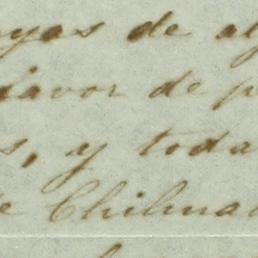 yas de al
favor de p
s, y toda
e Chihua